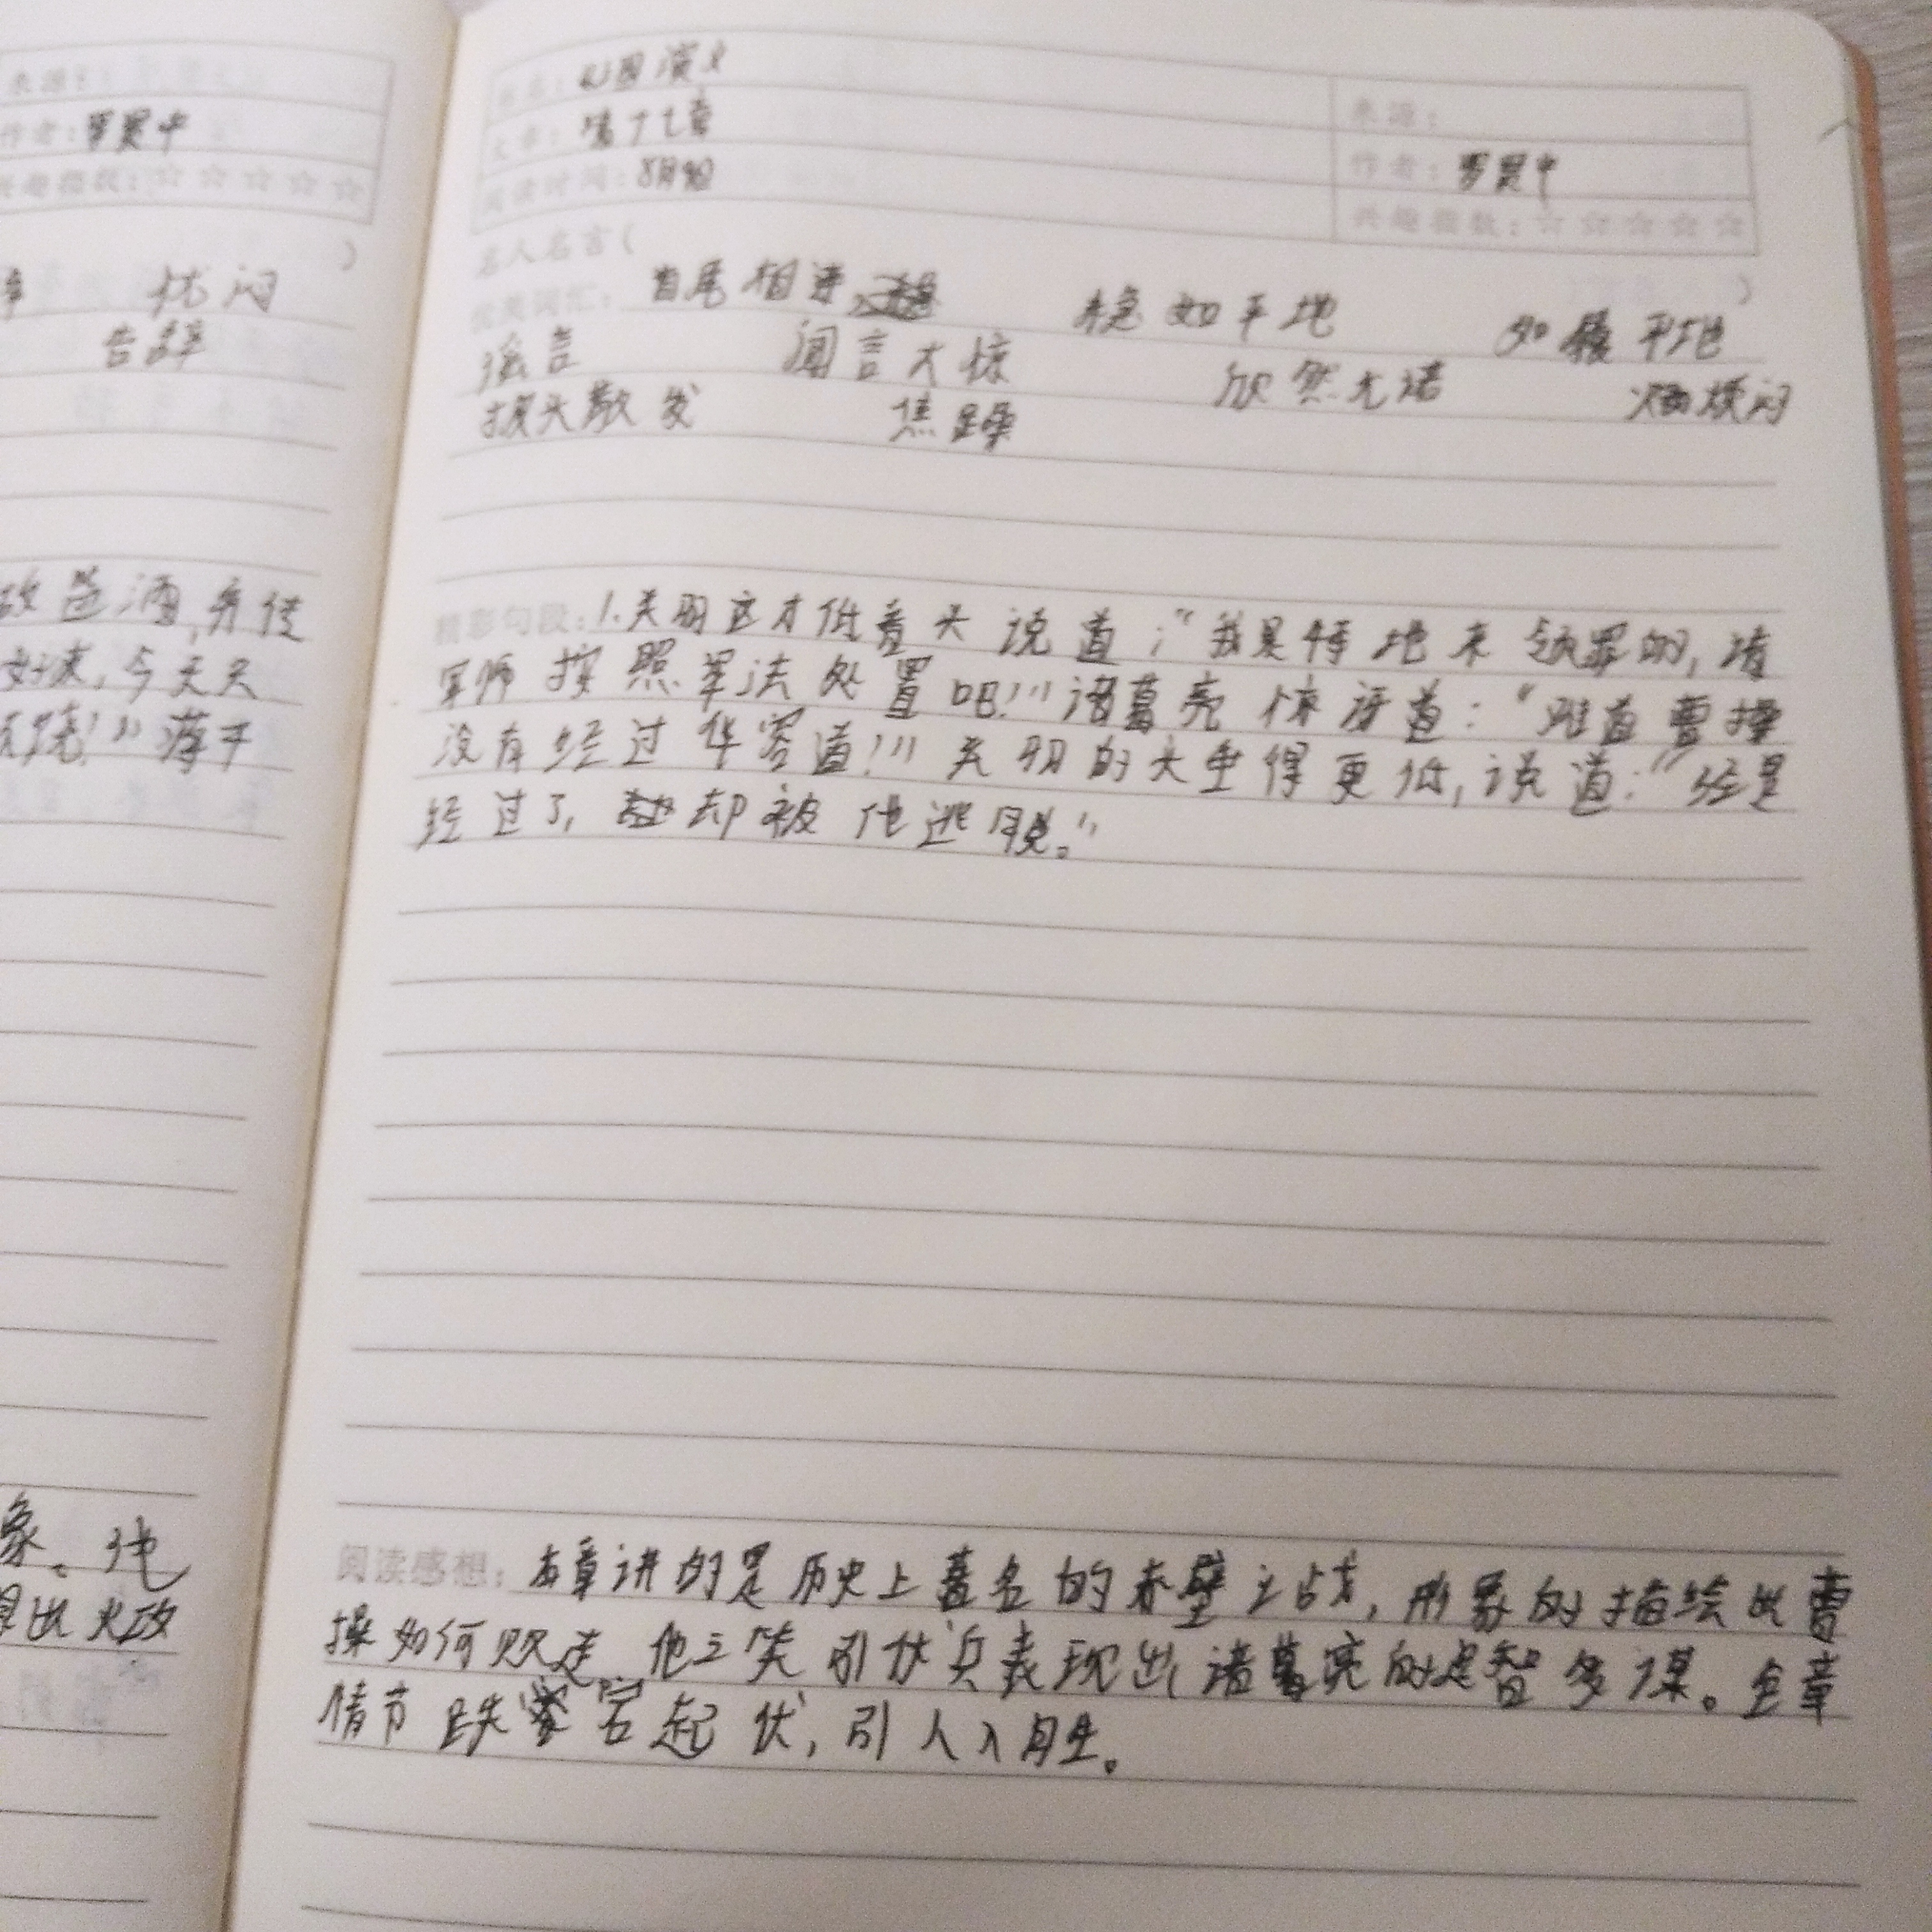 来源:
作者:罗贯中
兴趣指数:☆☆☆☆☆
)
扰闷
告辞
故造酒,务使
好求,今天天
饶!”落于
象。他
出火攻
书名:三国演义
文章:第十七章
阅读时间:8月9日
来源:
作者:罗贯中
兴趣指数:☆☆☆☆☆
名人名言( )
优美词汇: 首尾相连 稳如平地 如履平地
谣言 闻言大惊 欣然允诺 烦闷
披头散发 焦躁
精彩句段:1.关羽这才低着头说道:“我是特地来领罪的,请
军师按照军法处置吧!”诸葛亮惊讶道:“难道曹操
没有经过华容道!”关羽的头垂得更低,说道:“经是
经过了,却被他逃脱。”
阅读感想:本章讲的是历史上著名的赤壁之战,形象的描绘出曹
操如何败走 他三笑引伏兵表现出诸葛亮的足智多谋。全章
情节跌宕起伏,引人入胜。